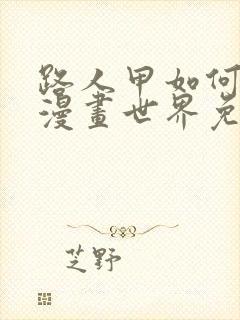 路人甲如何
漫畫世界免
芝野